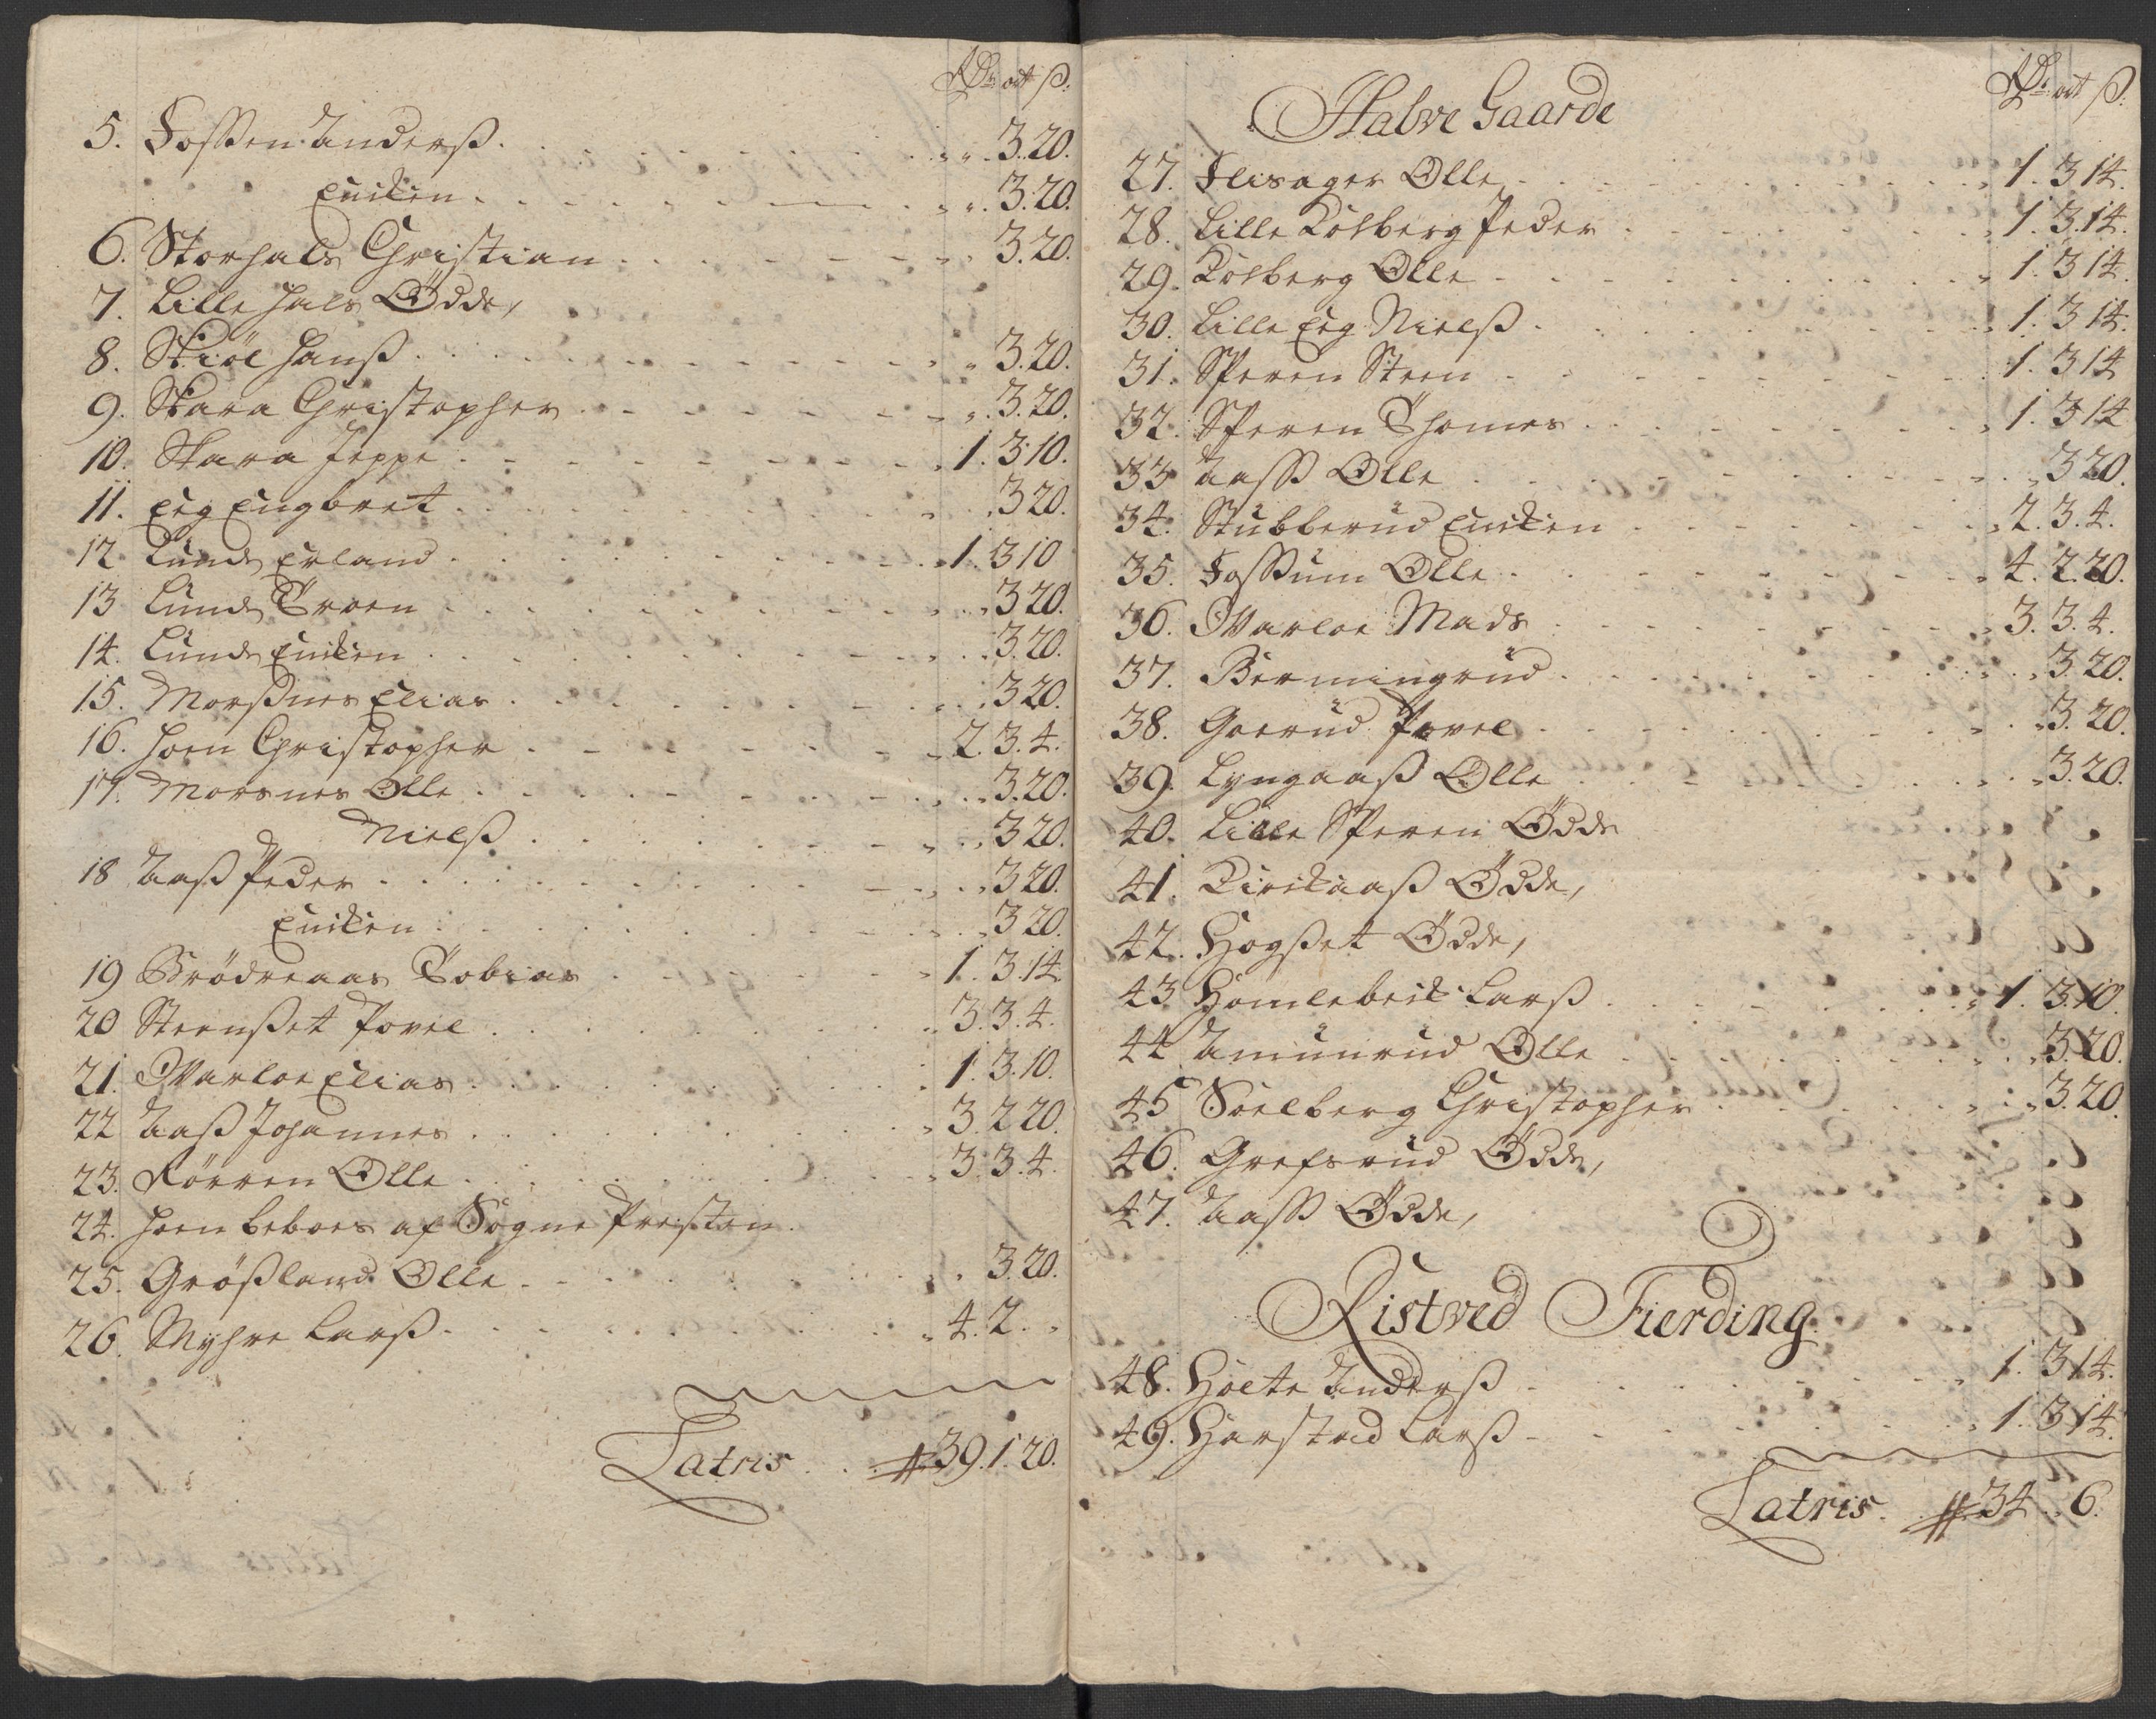 Rdr ort ß.
5. Fossen Anderß. 3.20.
Enken. 3.20.
6. Storhals Christian. 3.20.
7. Lille Hals Ödde,
8. Skiøl Hanß. 3.20.
9. Skara Christopher. 3.20.
10. Skara Jeppe. 1.3.10.
11. Eeg Engbret. 3.20.
12 Lund Erland. 1.3.10
13 Lund Troen. 3.20.
14. Lund Enken. 3.20.
15. Morßnes Elias. 3.20.
16. Hoen Christopher. 2.3.4.
17. Morsnes Olle. 3.20.
Nielß. 3.20.
18 Aaß Peder. 3.20.
Enken. 3.20.
19 Brödreaas Tobias 1.3.14
20 Steenßet Povel. 3.3.4.
21. Warloe Elias. 1.3.10.
22 Aaß Johannes. 3.2.20.
23. Körren Olle. 3.3.4.
24. Hoen beboes af Sogne Presten.
25. Größland Olle. 3.20.
26. Myhre Larß. 4.2. "
Latris. # 39.1.20.
Rdr ort ß.
Halve Gaarde
27. Flisager Olle. 1.3.14.
28. Lille Kolberg Peder 1.3.14.
29. Kolberg Olle 1.3.14.
30. Lille Eeg Nielß. 1.3.14.
31. Speren Steen 1.3.14
32. Speren Thomes 1.3.14
33 Aass Olle 3.20.
34. Stubberud Enken 2.3.4.
35. Fossum Olle. 4.2.20.
36. Warloe Mads 3.3.4.
37. Bermingrud. 3.20.
38. Goerud Povel 3.20.
39. Lyngaaß Olle 3.20.
40. Lille Speren Ödde
41. Kirkaaß Ödde,
42. Hogßet Ödde,
43 Homlebeik Larß. 1.3.10.
44 Amunrud Olle. 3.20.
45 Soelberg Christopher. 3.20.
46. Grefsrud Ödde,
47. Aass Ödde,
Ristved Fierding
48. Holte Anderß 1.3.14.
49. Harstad Larß 1.3.14.
Latris. # 34. " 6.